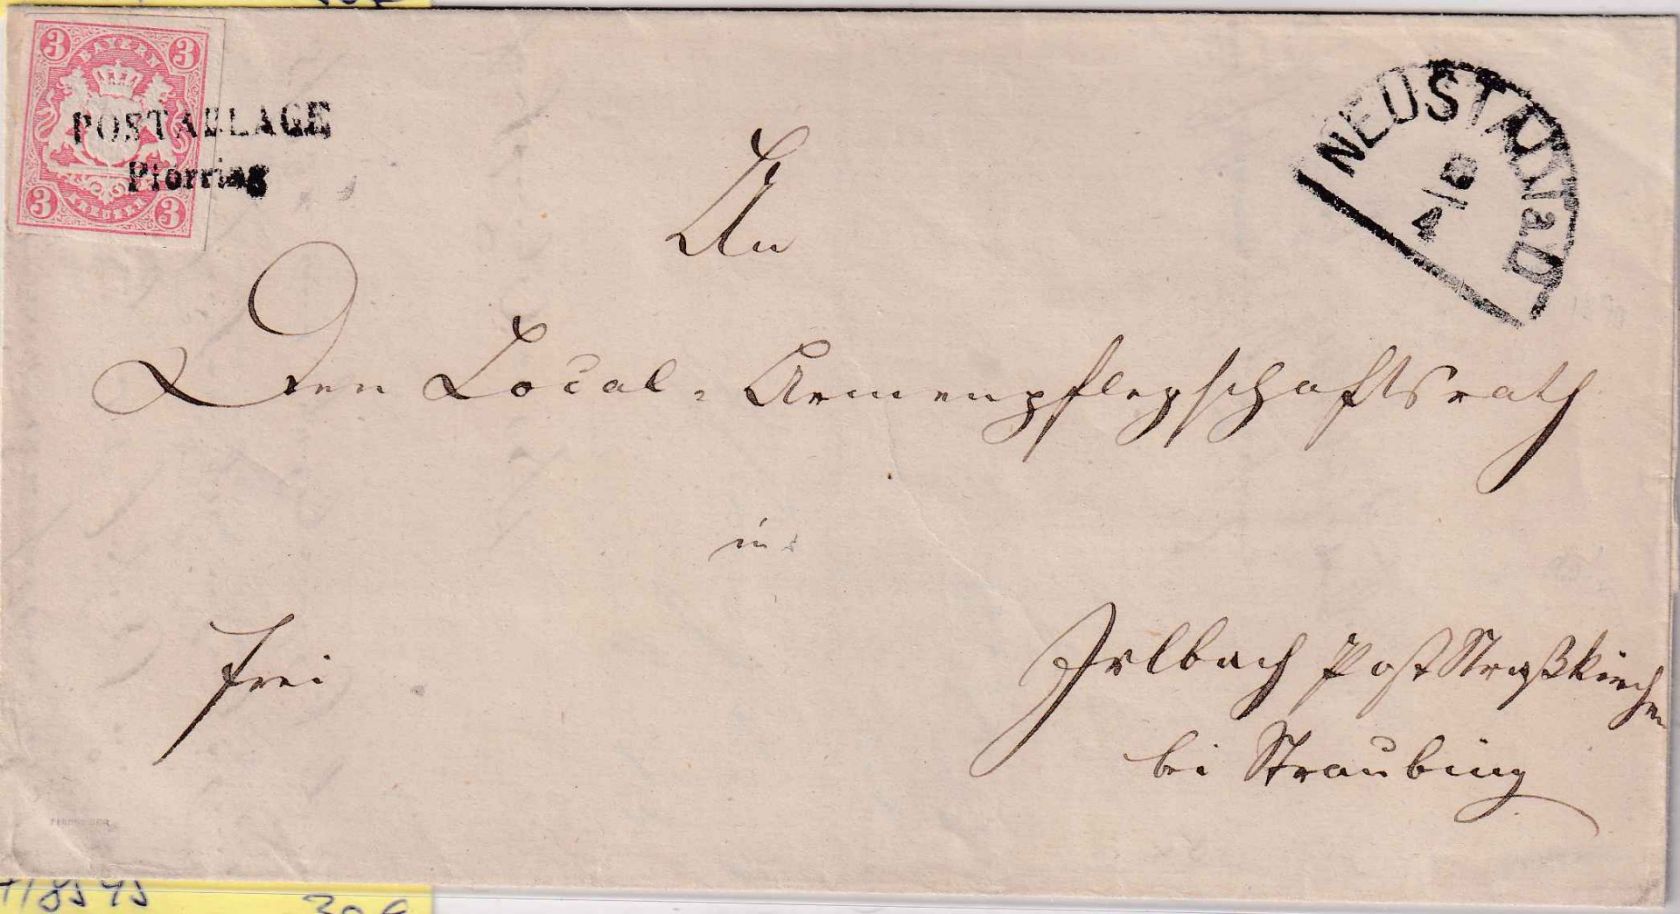 3 3
BAYERN
POSTABLAGE
Pförring
3 3
KREUZER
NEUSTADT a D
8/4
An
Den Local-Armenpflegschaftsrath
in
frei
Irlbach Post Straßkirchen
bei Straubing